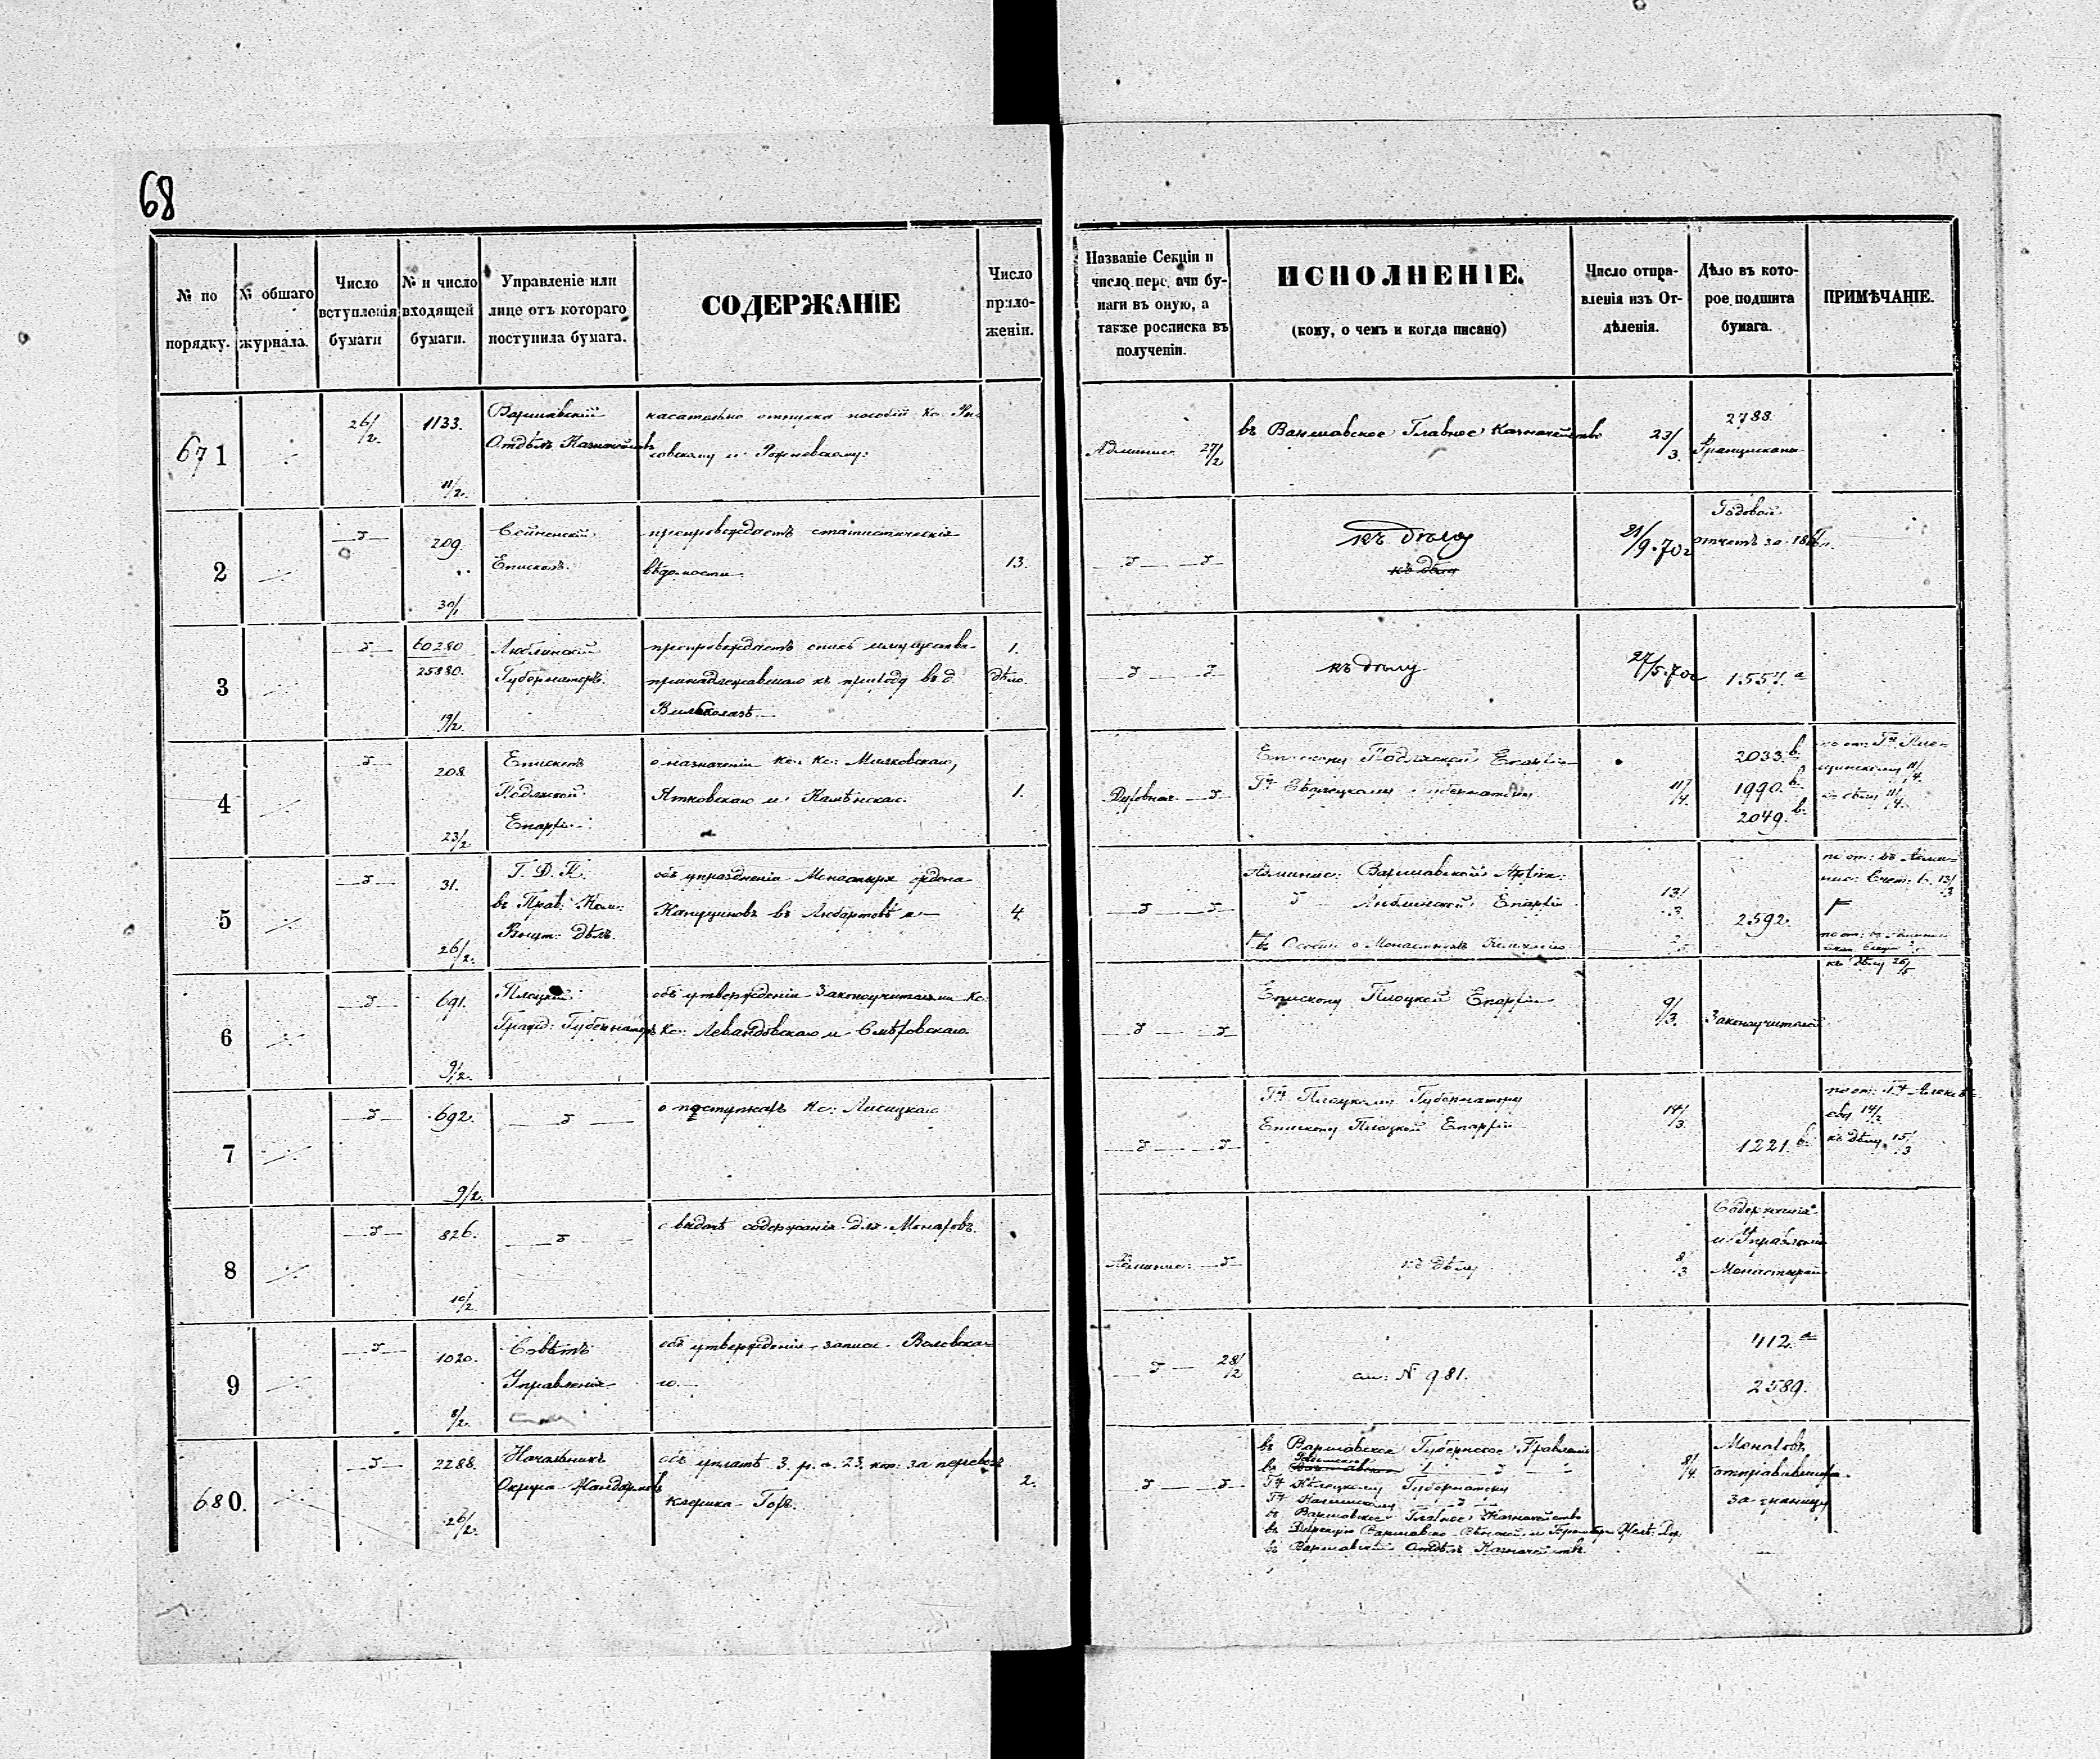 68
№ по порядку.
№ общаго журнала.
Число вступленія бумаги
№ и число входящей бумаги.
Управленіе или лице отъ котораго поступила бумага.
СОДЕРЖАНІЕ
Число приложеніи.
Названіе Секціи и число перс. ачи бумаги въ оную, а также росписка въ полученіи.
ИСПОЛНЕНІЕ.
(кому, о чемъ и когда писано)
Число отправленія изъ Отдѣленія.
Дѣло въ которое подшита бумага.
ПРИМѢЧАНІЕ.
671
26/2.
1133.
11/2.
Варшавскій
Отдѣлъ Казначействъ
касательно отпуска пособій Кс.
и Рожновскому.
Админис. 27/2
въ Варшавское Главное Казначейство
23/3.
2788.
Францискане
2
209.
30/1
Сейненскій
Епископъ.
препровождаетъ статистическія
вѣдомости
13.
къ дѣлу
къ дѣлу
21/9.70г
Годовой
отчетъ за
3
60280
25880.
19/2.
Люблинскій
Губернаторъ.
препровождаетъ
принадлежавшаго къ приходу въ д.
1.
дѣло
къ дѣлу
27/5.70г
1557.а
4
208.
23/2
Епископъ
Подляской
Епархіи
о назначеніи Кс. Кс. Мисковскаго,
Ятковскаго и Каменскаго.
1.
Духовная.
Епископу Подляской Епархіи
Гну Сѣдлецкому Губернатору
11/4.
2033.b.
1990.b.
2049.b.
къ дѣлу 11/4.
5
31.
26/2.
Г. Д. П.
въ Прав. Ком.
Внут. Дѣлъ.
объ упраздненіи Монастыря ордена
Капуциновъ въ Любартовѣ
4.
Админис. Варшавской Архіеп.
Люблинской Епархіи
въ Особую о Монастыряхъ Комиссію
13/3.
2592.
къ дѣлу 26/5
6
691.
9/2.
Плоцкій
Гражд. Губернаторъ
объ утвержденіи Законоучителями Кс.
Кс. Левандовскаго и Смѣховскаго.
Епископу Плоцкой Епархіи
9/3.
Законоучителей
7
692.
9/2.
о поступкахъ Кс. Лисицкаго
Гну Плоцкому Губернатору
Епископу Плоцкой Епархіи
14/3.
1221.b.
къ дѣлу 15/3
8
826.
10/2.
о выдачѣ содержанія для Монаховъ.
Админис.
къ дѣлу
8/3
Содержанія
и Управленія
Монастырей
9
1020.
8/2.
Совѣтъ
Управленія
объ утвержденіи записи Воловска-
го.
28/2
см. № 981.
412.а
2589.
680.
2288.
26/2.
Начальникъ
Округа Жандармовъ
объ уплатѣ 3. р. с. 23. коп. за перевозъ
клерика
2.
въ Варшавское Губернское Правленіе
Гну Кѣлецкому Губернатору
Гну Калишскому
въ Варшавское Главное Казначейство
въ Дирекцію Варшавско-Вѣнской и Жел. Дор.
въ Варшавскій Отдѣлъ Казначействъ.
8/4.
Монаховъ
отправившихся
за границу